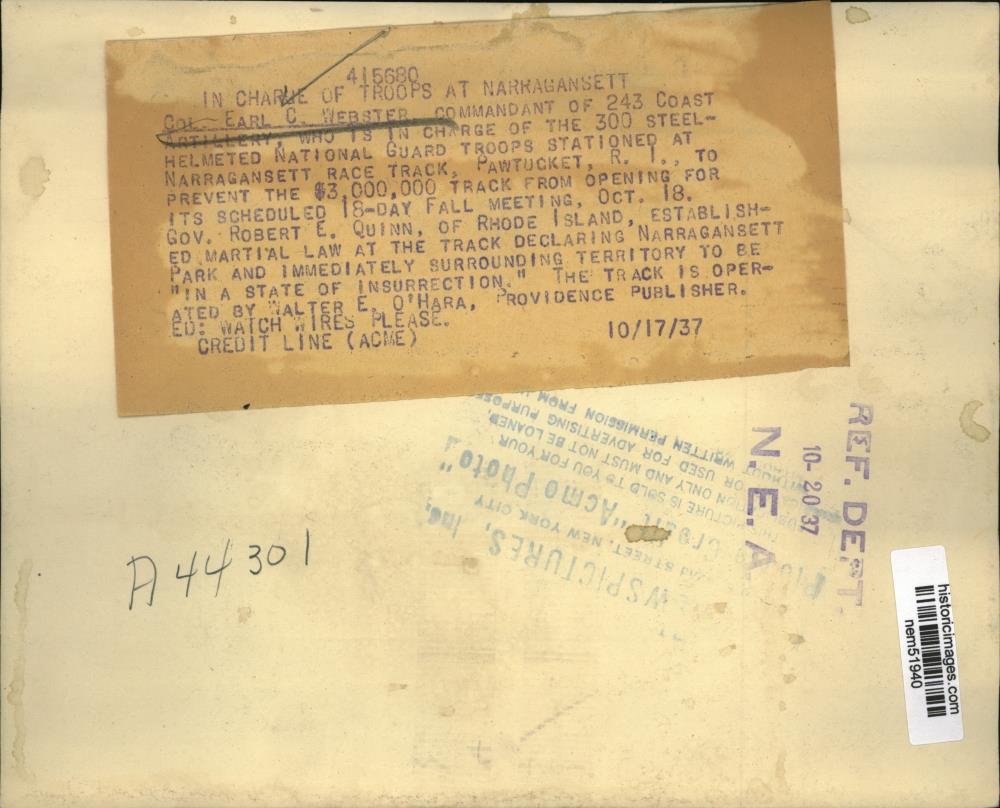 415680
IN CHARGE OF TROOPS AT NARRAGANSETT
COL. EARL C. WEBSTER, COMMANDANT OF 243 COAST
ARTILLERY, WHO IS IN CHARGE OF THE 300 STEEL-
HELMETED NATIONAL GUARD TROOPS STATIONED AT
NARRAGANSETT RACE TRACK, PAWTUCKET, R. I., TO
PREVENT THE $3,000,000 TRACK FROM OPENING FOR
ITS SCHEDULED 18-DAY FALL MEETING, OCT. 18.
GOV. ROBERT E. QUINN, OF RHODE ISLAND, ESTABLISH-
ED MARTIAL LAW AT THE TRACK DECLARING NARRAGANSETT
PARK AND IMMEDIATELY SURROUNDING TERRITORY TO BE
"IN A STATE OF INSURRECTION." THE TRACK IS OPER-
ATED BY WALTER E. O'HARA, PROVIDENCE PUBLISHER.
ED: WATCH WIRES PLEASE.
CREDIT LINE (ACME) 10/17/37
WSPICTURES, Inc.
STREET, NEW YORK CITY
Credit "Acme Photo"
PICTURE IS SOLD TO YOU FOR YOUR
ON ONLY AND MUST NOT BE LOANED,
OR USED FOR ADVERTISING PURPOSE
WITHOUT WRITTEN PERMISSION FROM
REF. DEPT.
10-20 37
N. E. A
A44301
historicimages.com
nem51940